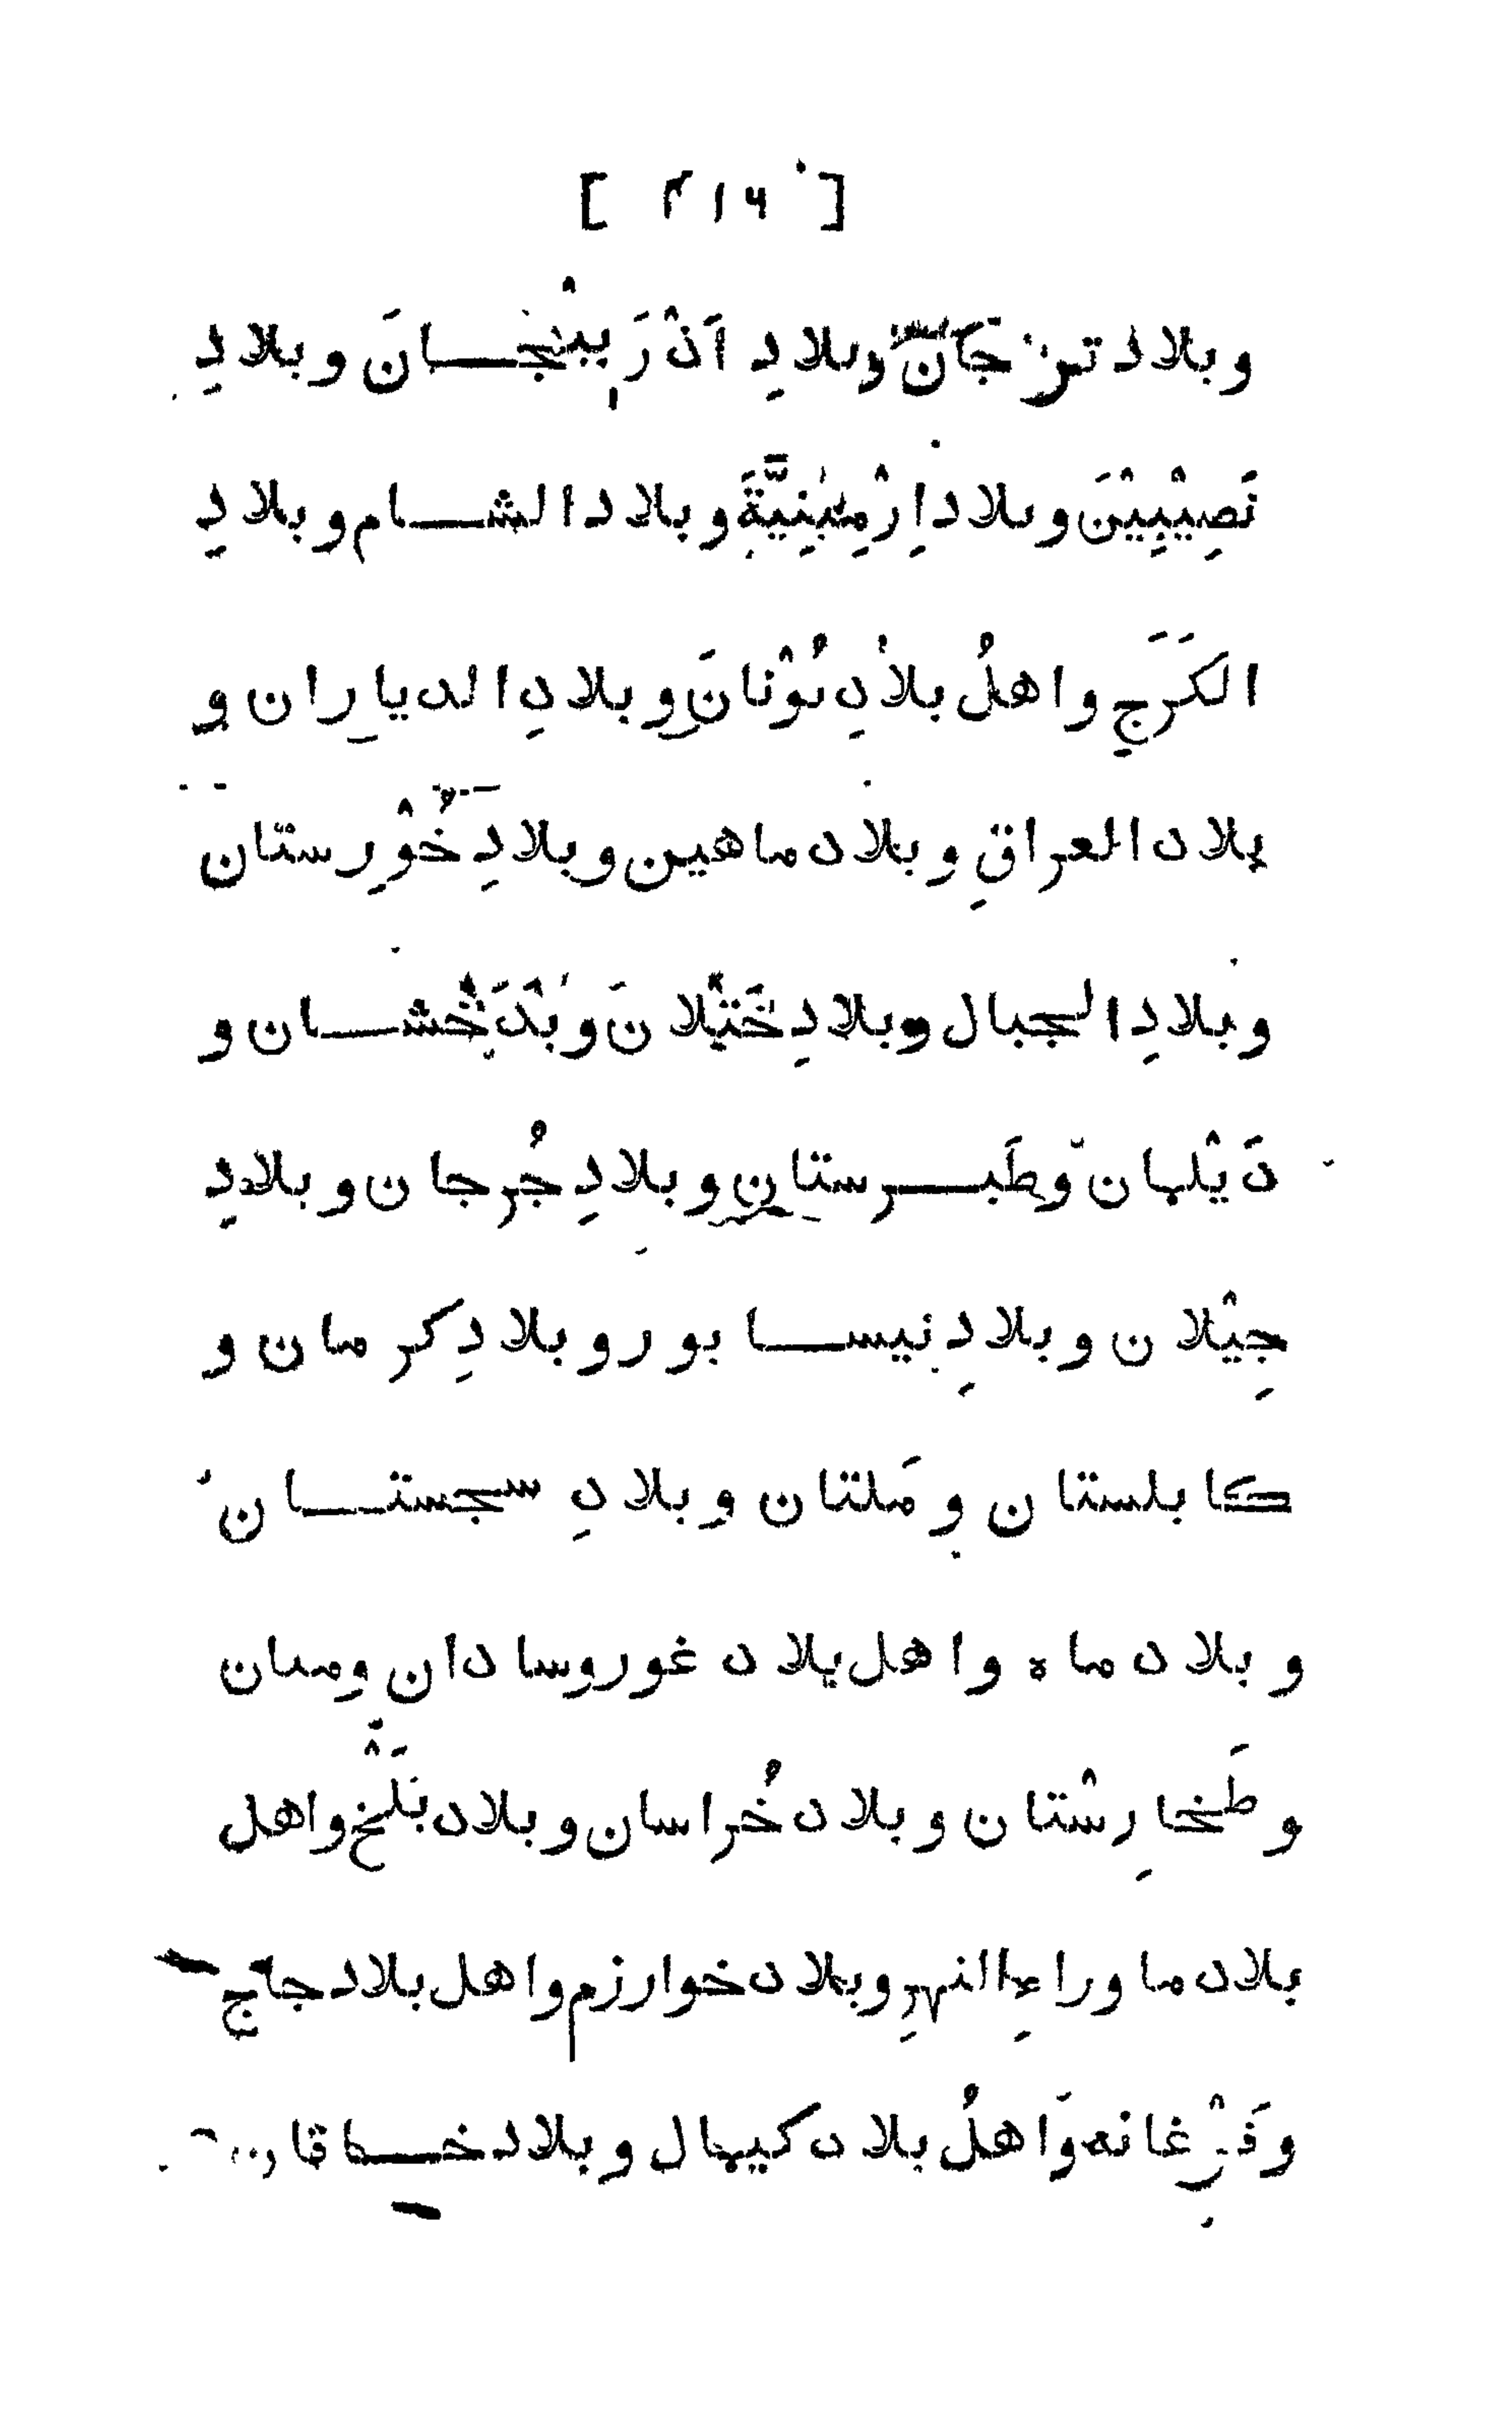 [ ٣١٦ ]
وبلاد وبلادِ وبلادِ
نَصِيْبِيْنَ وبلاد اِرْمِيْنِيَّةَ وبلاد الشام وبلادِ
الكَرَجِ واهلُ بلادِ يُوْنانَ وبلادِ الديا ران و
بلاد العراقِ وبلاد ماهين وبلادِ خُوْرِستان
وبلادِ الجبال وبلادِ خَتْلانَ وبَدَخْشان و
دَيْلمان وطَبرستان وبلادِ جُرجان وبلادِ
جِيْلان وبلادِ نيسابور وبلادِ كرمان و
كابلستان و مَلتان وبلادِ سجستان
وبلاد ماه واهل بلاد غور وسادان
وطَخارِسْتان وبلاد خُراسان وبلاد بَلْخ واهل
بلاد ما وراءِ النهرِ وبلاد خوارزم واهل بلاد جاج
وفَرْغانه وَاهلُ بلاد كيمال وبلاد